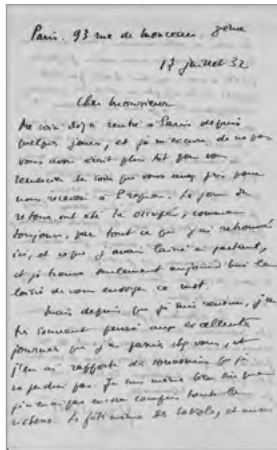 Paris. 93 rue de Monceau. 8ème
17 juillet 32
Cher Monsieur
Me voici déjà rentré à Paris depuis
quelques jours, et je m'excuse de ne pas
vous avoir écrit plus tôt pour vous
remercier du soin que vous avez pris pour
nous recevoir à Prague. Les jours de
retour ont été très occupés, comme
toujours, par tout ce que j'ai retrouvé
ici, et ce que j'avais laissé en partant,
et je trouve seulement aujourd'hui le
loisir de vous envoyer ce mot.
Mais depuis que je suis revenu, j'ai
très souvent pensé aux excellentes
journées que j'ai passées chez vous, et
j'en ai rapporté des souvenirs que je
ne perdrai pas. Je me même bien que
je n'en ai pas encore compris toute la
richesse. La fête même des Sokols, et aussi